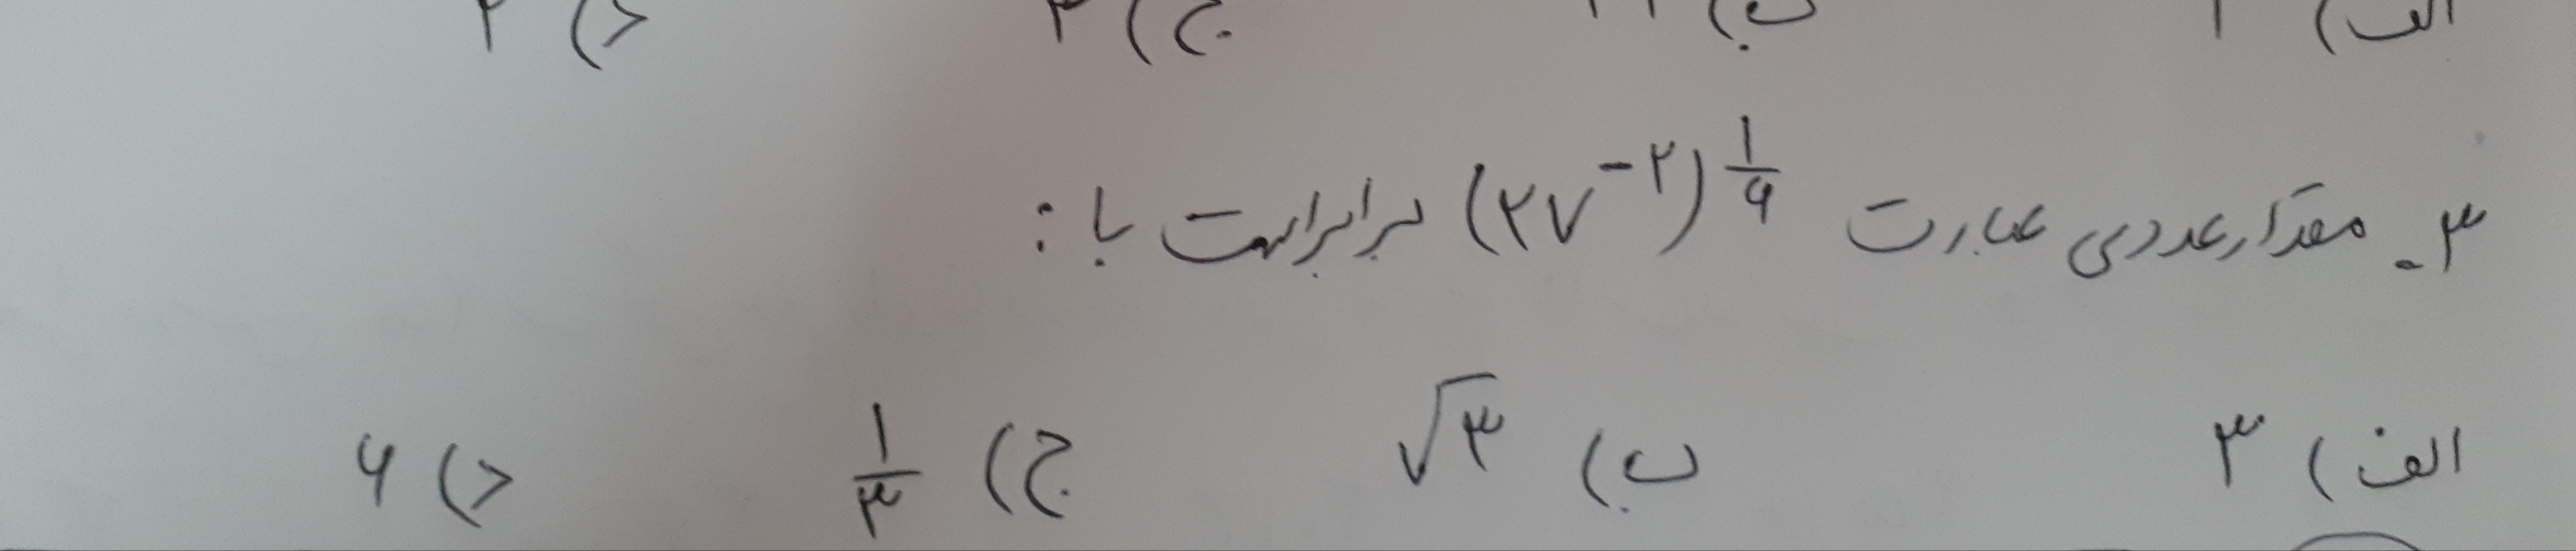 الف) ب) ج) ۳ د) ۲
۳- مقدار عددی عبارت (۲۷^-۲)^۱/۶ برابر است با :
الف) ۳ ب) √۳ ج) ۱/۳ د) ۶